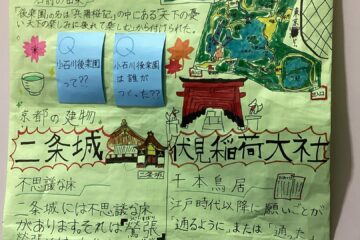 「後楽園」の名は「兵陽楼記」の中にある天下の憂
い天下の楽しみに後れて楽しむから付けられた。
Q
小石川後楽園
って??
Q
小石川後楽園
は誰が
つくった??
京都の建物
二条城
二条城
不思議な床
二条城には不思議な床
があります。それは鴬張
伏見稲荷大社
千本鳥居
江戸時代以降に願いごとが
「通るように」または「通った